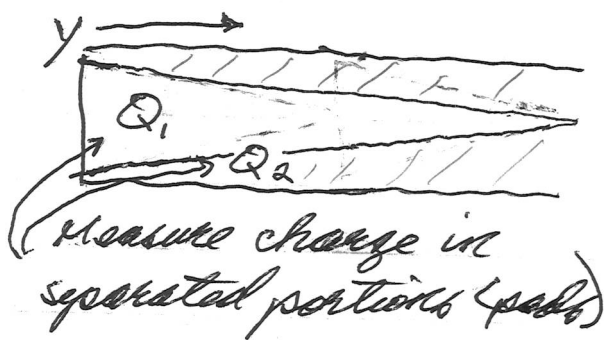 y
Q1
Q2
Measure charge in
separated portions (pads)